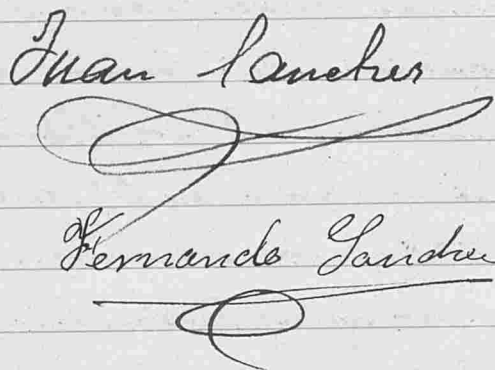 Juan Sancher
Fernando Sanche